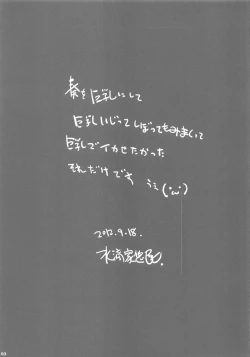 奏を巨乳にして
巨乳いじってしぼってもみまくって
巨乳でイカせたかった
それだけです
2012.9.18.
03